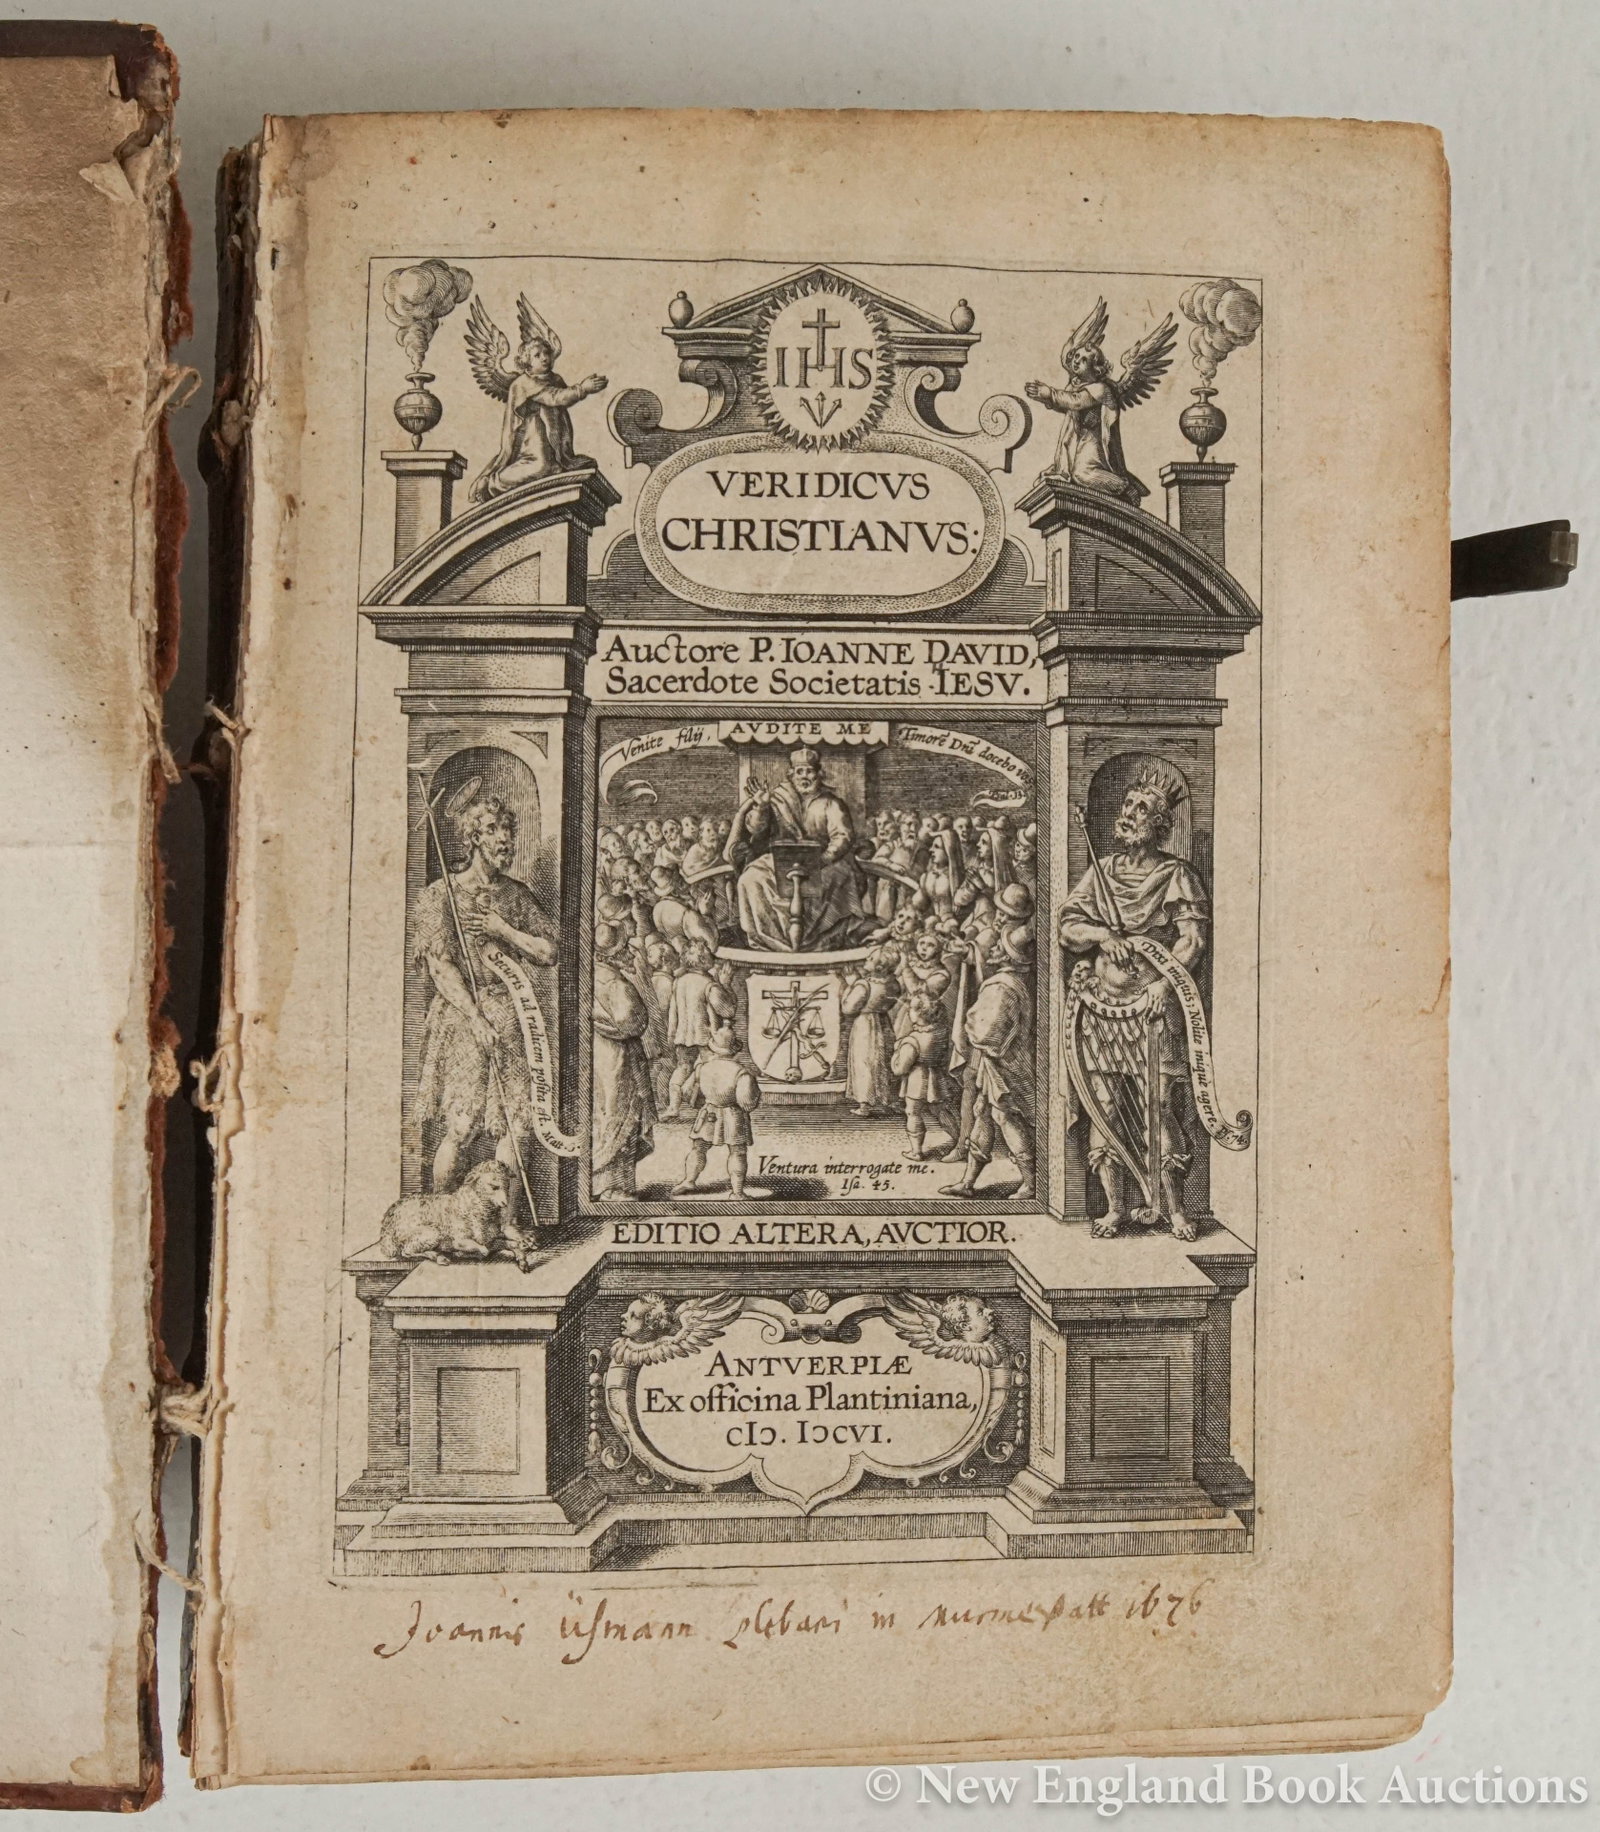 IHS
VERIDICVS
CHRISTIANVS:
Auctore P. IOANNE DAVID,
Sacerdote Societatis IESV.
Venite filij,
AVDITE ME
Timorē Dnī docebo vos
Securis ad radicem posita est. Matt. 3.
Dixi iniquis: Nolite iniquè agere. Ps. 74.
Ventura interrogate me.
Isa. 45.
EDITIO ALTERA, AVCTIOR.
ANTVERPIÆ
Ex officina Plantiniana,
cIↄ. Iↄcvı.
Joannis Üsmann plebani in 1676
© New England Book Auctions